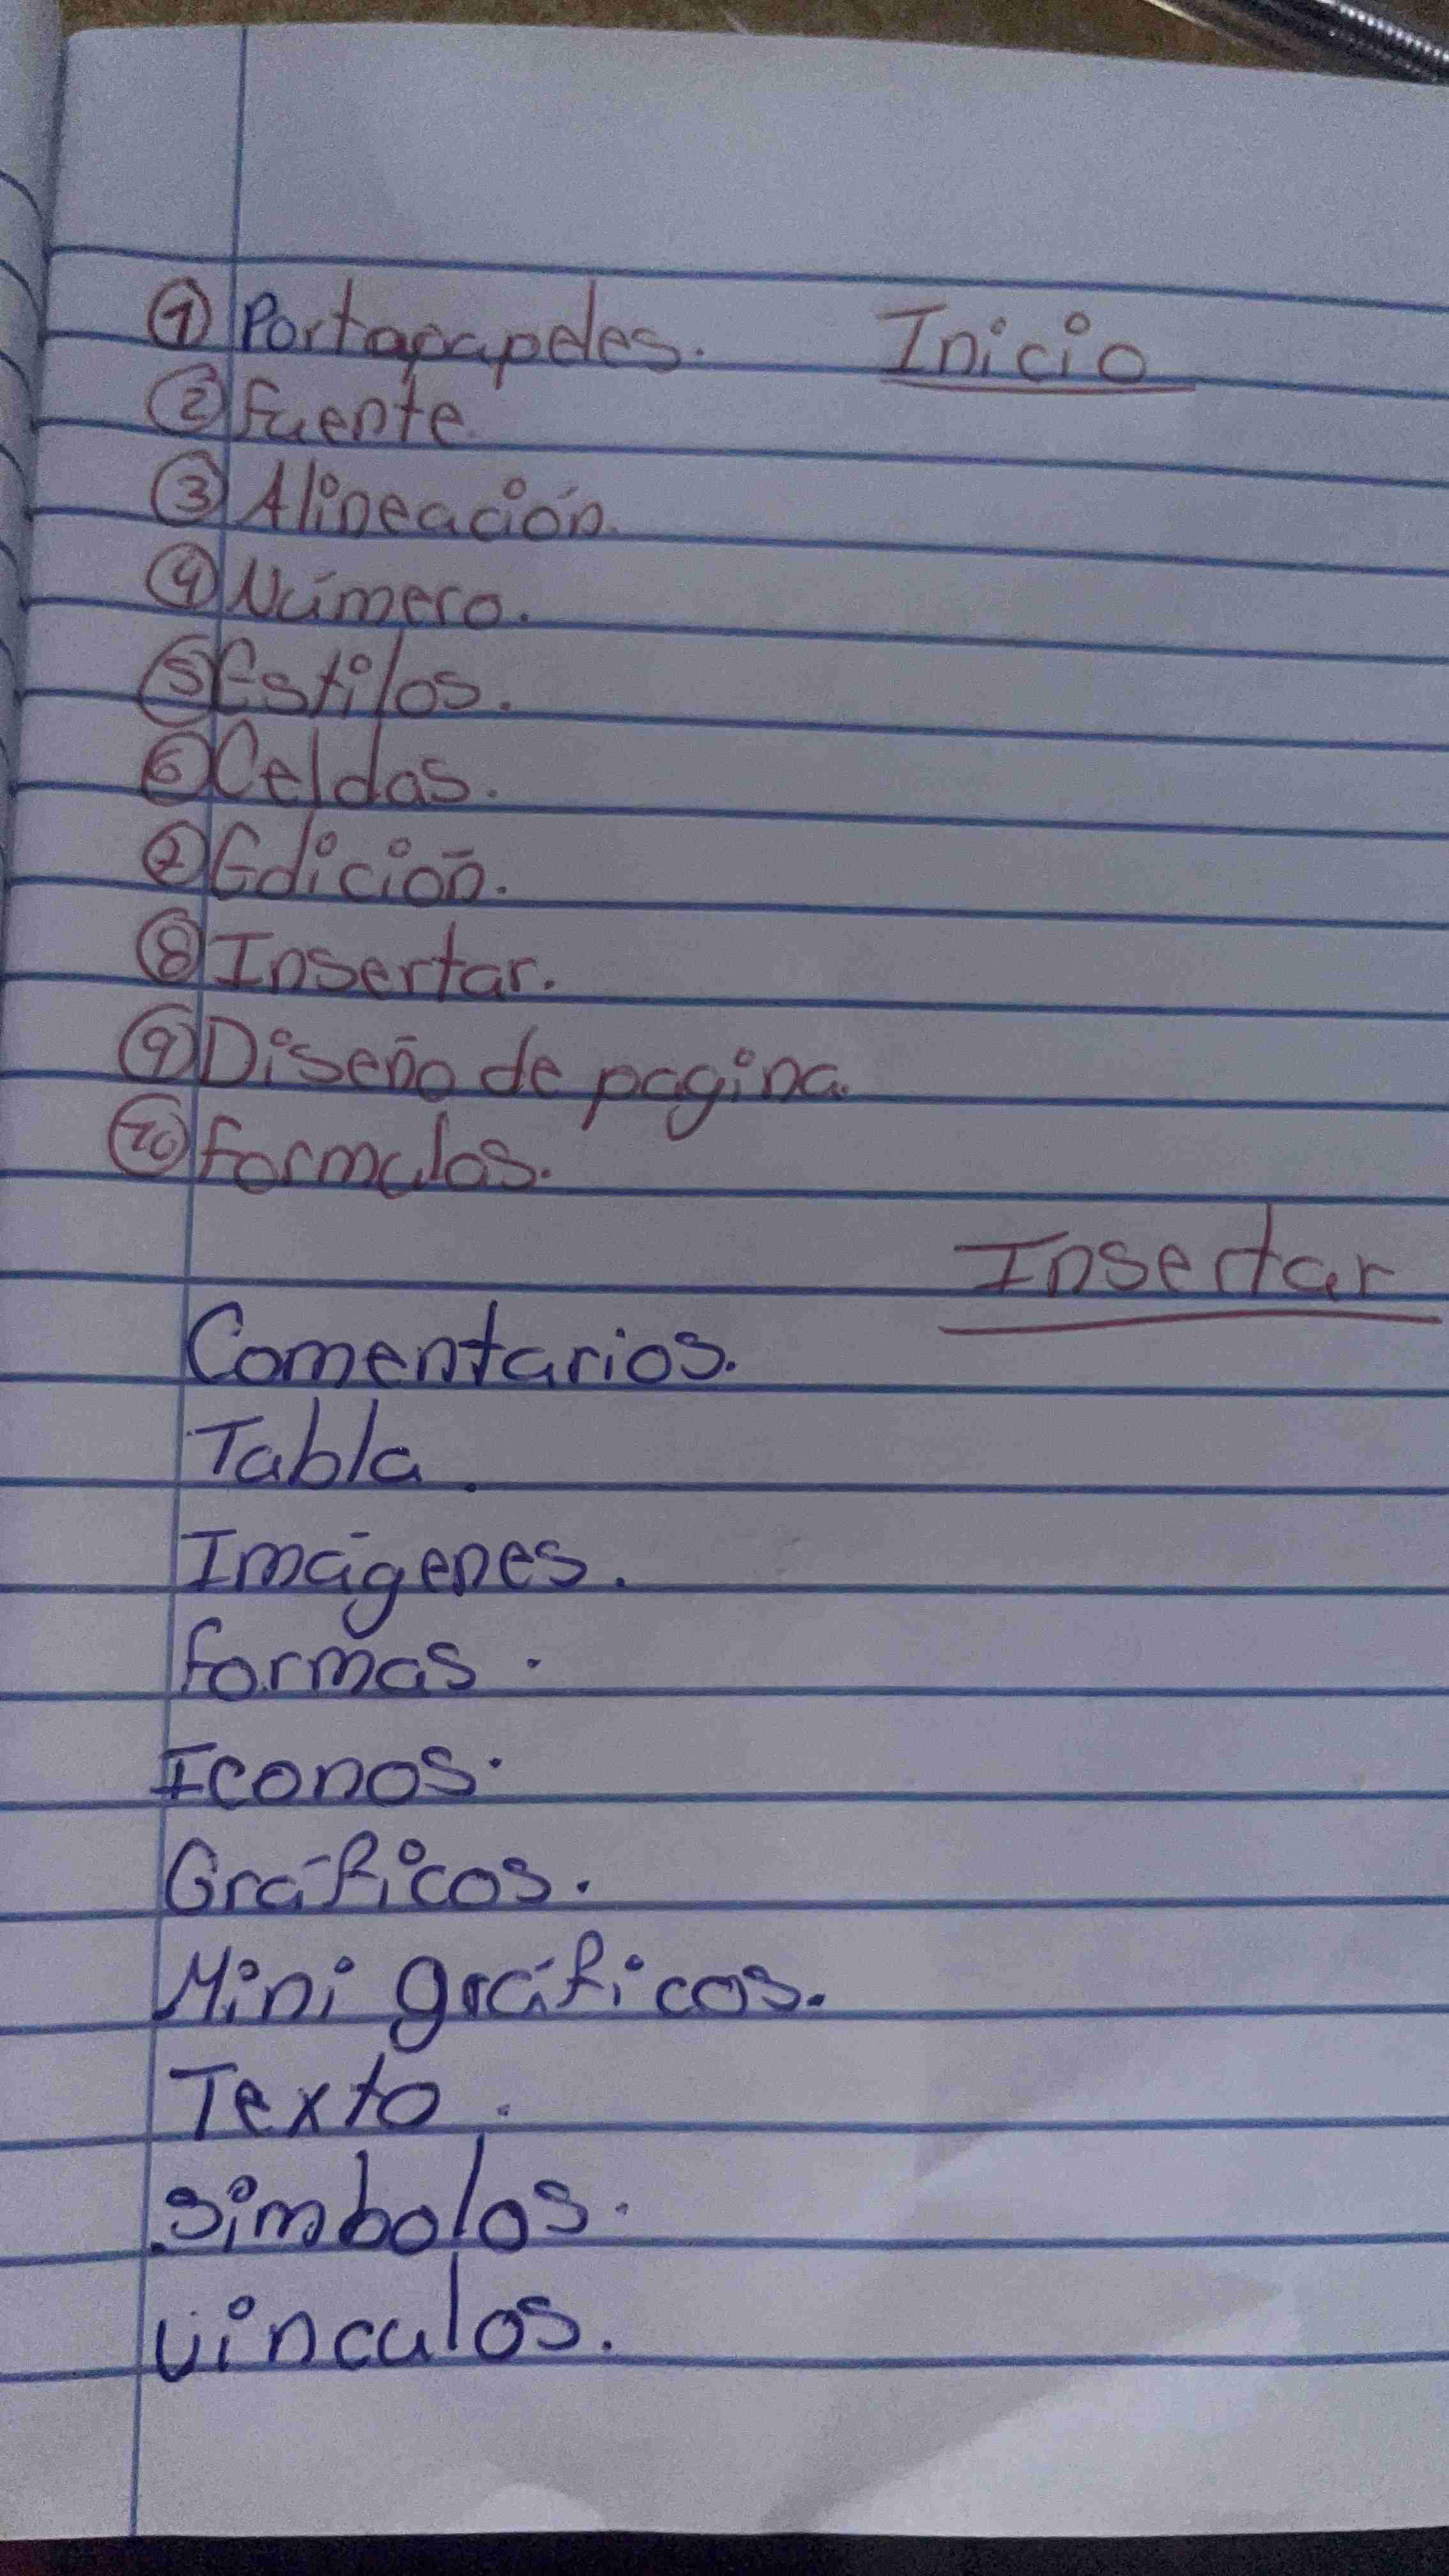 ① Portapapeles. Inicio
② Fuente
③ Alineación.
④ Número.
⑤ Estilos.
⑥ Celdas.
⑦ Edición.
⑧ Insertar.
⑨ Diseño de pagina.
⑩ formulas.
Insertar
Comentarios.
Tabla.
Imágenes.
formas.
Iconos.
Gráficos.
Mini gráficos.
Texto.
simbolos.
vinculos.